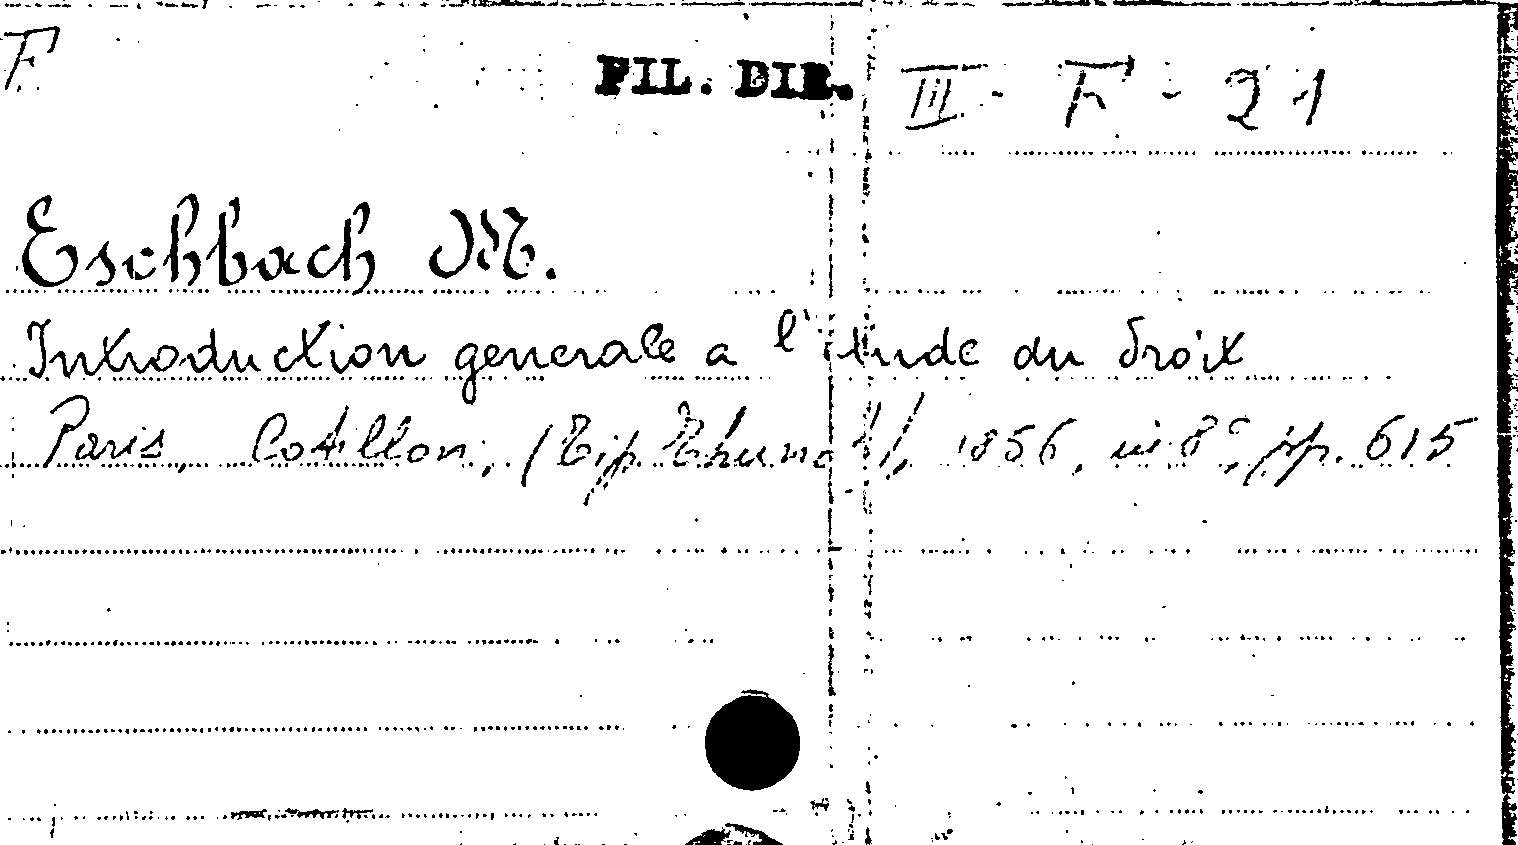 F.
FIL. DIR. III - F - 21
Eschbach M.
Introduction generale a l'étude du droit
Paris, Cotillon, (Tip. Thunot), 1856, in 8°, pp. 615